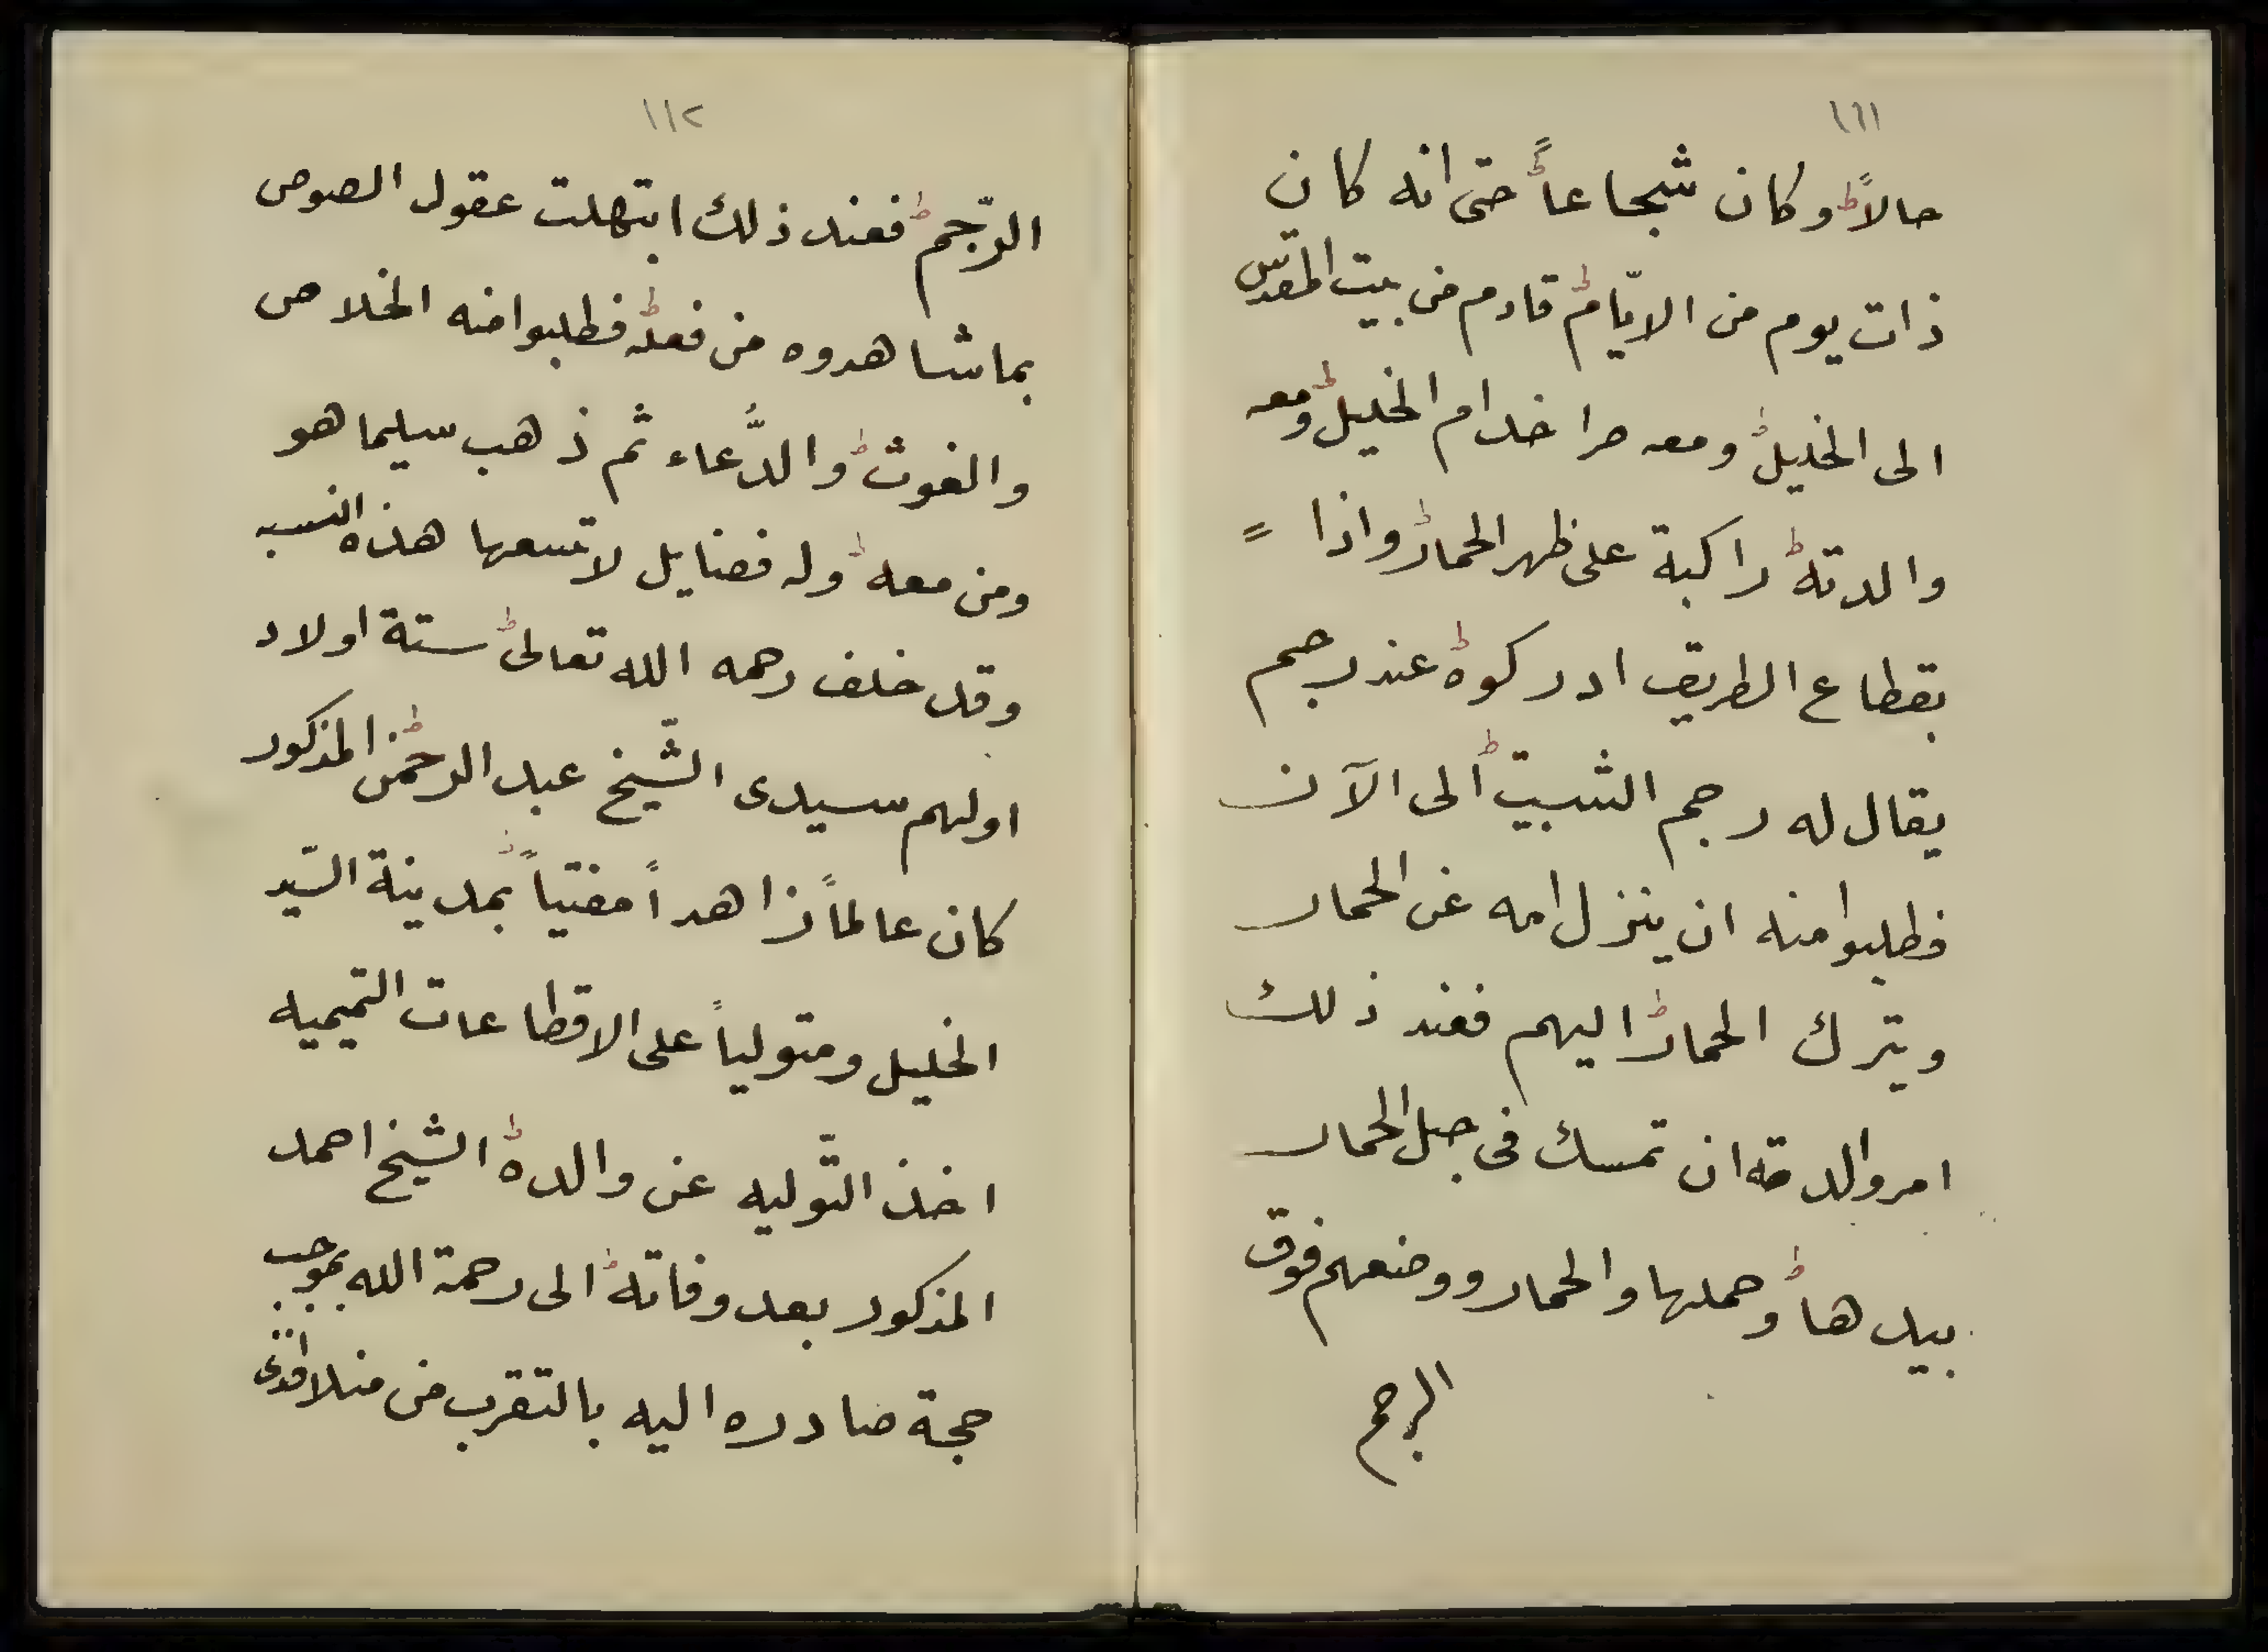 ١١١
حالاً وكان شجاعاً حتى انه كان
ذات يوم من الايّام قادم من بيت المقدّس
الى الخليل ومعه خدام الخليل ومعه
والدته راكبة على ظهر الحمار واذا
بقطاع الطريق ادركوه عند رجم
يقال له رجم الثبيت الى الآن
فطلبوا منه ان ينزل امه عن الحمار
ويترك الحمار اليهم فعند ذلك
امر والدته ان تمسك فى حبل الحمار
بيدها وحملها والحمار ووضعهم فوق
الرجم
١١٢
الرّجم فعند ذلك ابتهلت عقول الصوص
بما شاهدوه من فعله فطلبوا منه الخلاص
والغوث والدُّعاء ثم ذهب سليما هو
ومن معه وله فضايل لا تسعها هذه النسبه
وقد خلف رحمه الله تعالى ستة اولاد
اولهم سيدى الشّيخ عبد الرحمٰن المذكور
كان عالماً زاهداً مفتياً بمدينة السّيد
الخليل ومتولياً على الاقطاعات التميميه
اخذ التّوليه عن والده الشّيخ احمد
المذكور بعد وفاته الى رحمة الله بموجب
حجة صادره اليه بالتقرب من منلا افندى